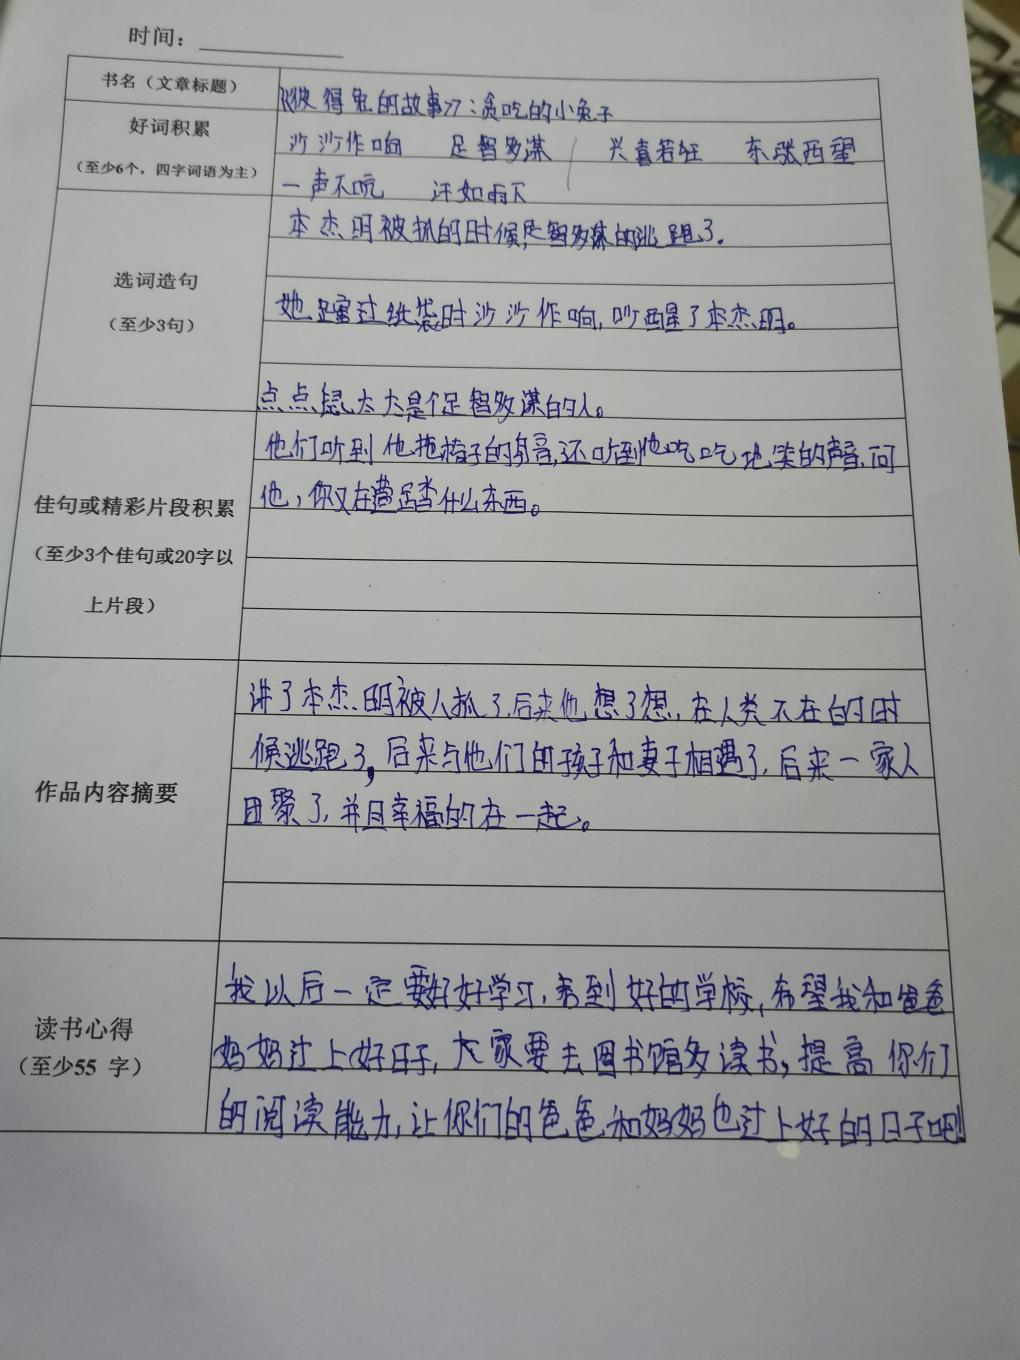 时间：
书名（文章标题）
《彼得兔的故事》：贪吃的小兔子
好词积累
（至少6个，四字词语为主）
沙沙作响 足智多谋 兴喜若狂 东张西望
一声不吭 汗如雨下
选词造句
（至少3句）
本杰明被抓的时候,足智多谋的逃跑了.
她蹿过纸袋时沙沙作响,吵醒了本杰明。
点点鼠太太是个足智多谋的人。
佳句或精彩片段积累
（至少3个佳句或20字以
上片段）
他们听到他拖椅子的声音,还听到他吃吃地笑的声音,问
他,你又在糟踏什么东西。
作品内容摘要
讲了本杰明被人抓了,后来他想了想,在人类不在的时
候逃跑了,后来与他们的孩子和妻子相遇了,后来一家人
团聚了,并且幸福的在一起。
读书心得
（至少55 字）
我以后一定要好好学习,考到好的学校,希望我和爸爸
妈妈过上好日子,大家要去图书馆多读书,提高你们
的阅读能力,让你们的爸爸和妈妈也过上好的日子吧!